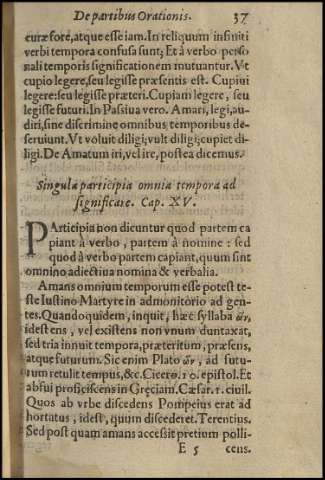 De partibus Orationis. 37
curæ fore, atque esse iam. In reliquum infiniti
verbi tempora confusa sunt; Et à verbo perso
nali temporis significationem mutuantur. Vt
cupio legere, seu legisse præsentis est. Cupiui
legere: seu legisse præteri. Cupiam legere, seu
legisse futuri. In Passiua vero. Amari, legi, au-
diri, sine discrimine omnibus temporibus de-
seruiunt. Vt voluit diligi; vult diligi; cupiet di-
ligi. De Amatum iri, vel ire, postea dicemus.
Singula participia omnia tempora ad
significare. Cap. XV.
PArticipia non dicuntur quod partem ca
piant à verbo, partem à nomine: sed
quod à verbo partem capiant, quum sint
omnino adiectiua nomina & verbalia.
Amans omnium temporum esse potest te-
ste Iustino Martyre in admonitorio ad gen-
tes. Quandoquidem, inquit, hæc syllaba ὤν,
id est ens, vel existens non vnum duntaxat,
sed tria innuit tempora, præteritum, præsens,
atque futurum. Sic enim Plato ὤν, ad futu-
rum retulit tempus, &c. Cicero. 10. epistol. Et
absui proficiscens in Gręciam. Cæsar. 1. ciuil.
Quos ab vrbe discedens Pompeius erat ad
hortatus, id est, quum discederet. Terentius.
Sed post quam amans accessit pretium polli-
E 5 cens.